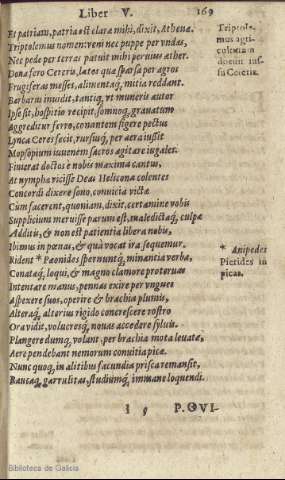 Liber V. 169
Et patriam, patria est clara mihi, dixit, Athenæ.
Triptolemus nomen: veni nec puppe per vndas,
Nec pede per terras patuit mihi pervius æther.
Dona fero Cereris, latos quæ sparsa per agros
Frugiferas messes, alimentaq́, mitia reddant.
Barbarus inuidit, tantiq́, vt muneris autor
Ipse sit, hospitio recipit, somnoq́, grauatum
Aggreditur ferro, conantem figere pectus
Lynca Ceres fecit, rursusq́, per aera iussit
Mopsopium iuuenem sacros agitare iugales.
Finierat doctos è nobis maxima cantus,
At nymphæ vicisse Deas Helicona colentes
Concordi dixere sono, conuicia victæ
Cum facerent, quoniam, dixit, certamine vobis
Supplicium meruisse parum est, maledictaq́, culpæ
Additis, & non est patientia libera nobis,
Ibimus in pœnas, & quà vocat ira sequemur.
Rident * Pæonides spernuntq́, minantia verba,
Conataq́, loqui, & magno clamore proteruas
Intentare manus, pennas exire per vngues
Aspexere suos, operire & brachia plumis,
Alteraq́, alterius rigido concrescere rostro
Ora vidit, volucresq́, nouas accedere syluis.
Plangere dumq́, volant, per brachia mota leuatæ,
Aere pendebant nemorum conuitia picæ.
Nunc quoq́, in alitibus facundia prisca remansit,
Raucaq́, garrulitas, studiumq́, immane loquendi.
Triptole-
mus agri-
colationis
donum ius-
su Cereris.
* Anipedes
Pierides in
picas.
P. OVI-
Biblioteca de Galicia